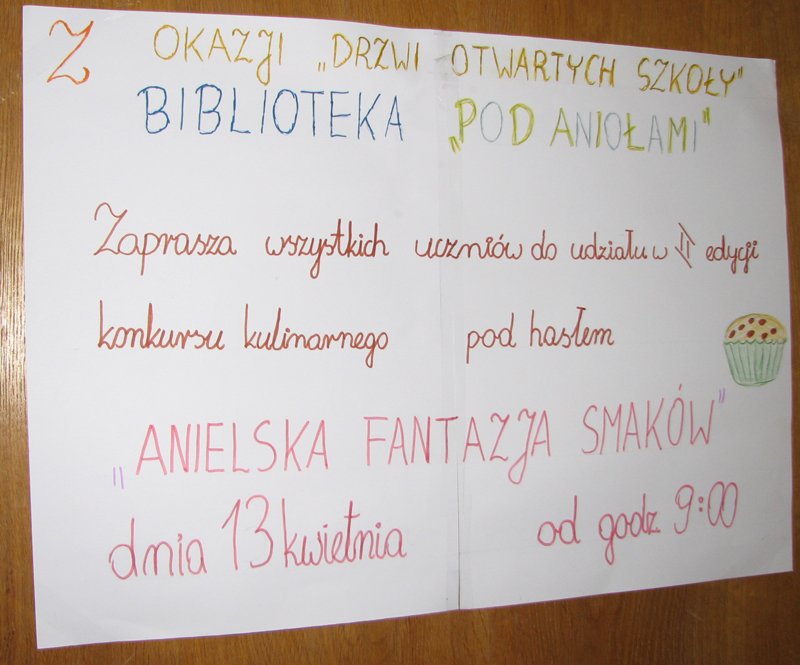 Z OKAZJI „DRZWI OTWARTYCH SZKOŁY"
BIBLIOTEKA „POD ANIOŁAMI"
Zaprasza wszystkich uczniów do udziału w II edycji
konkursu kulinarnego pod hasłem
„ANIELSKA FANTAZJA SMAKÓW"
dnia 13 kwietnia od godz 9:00